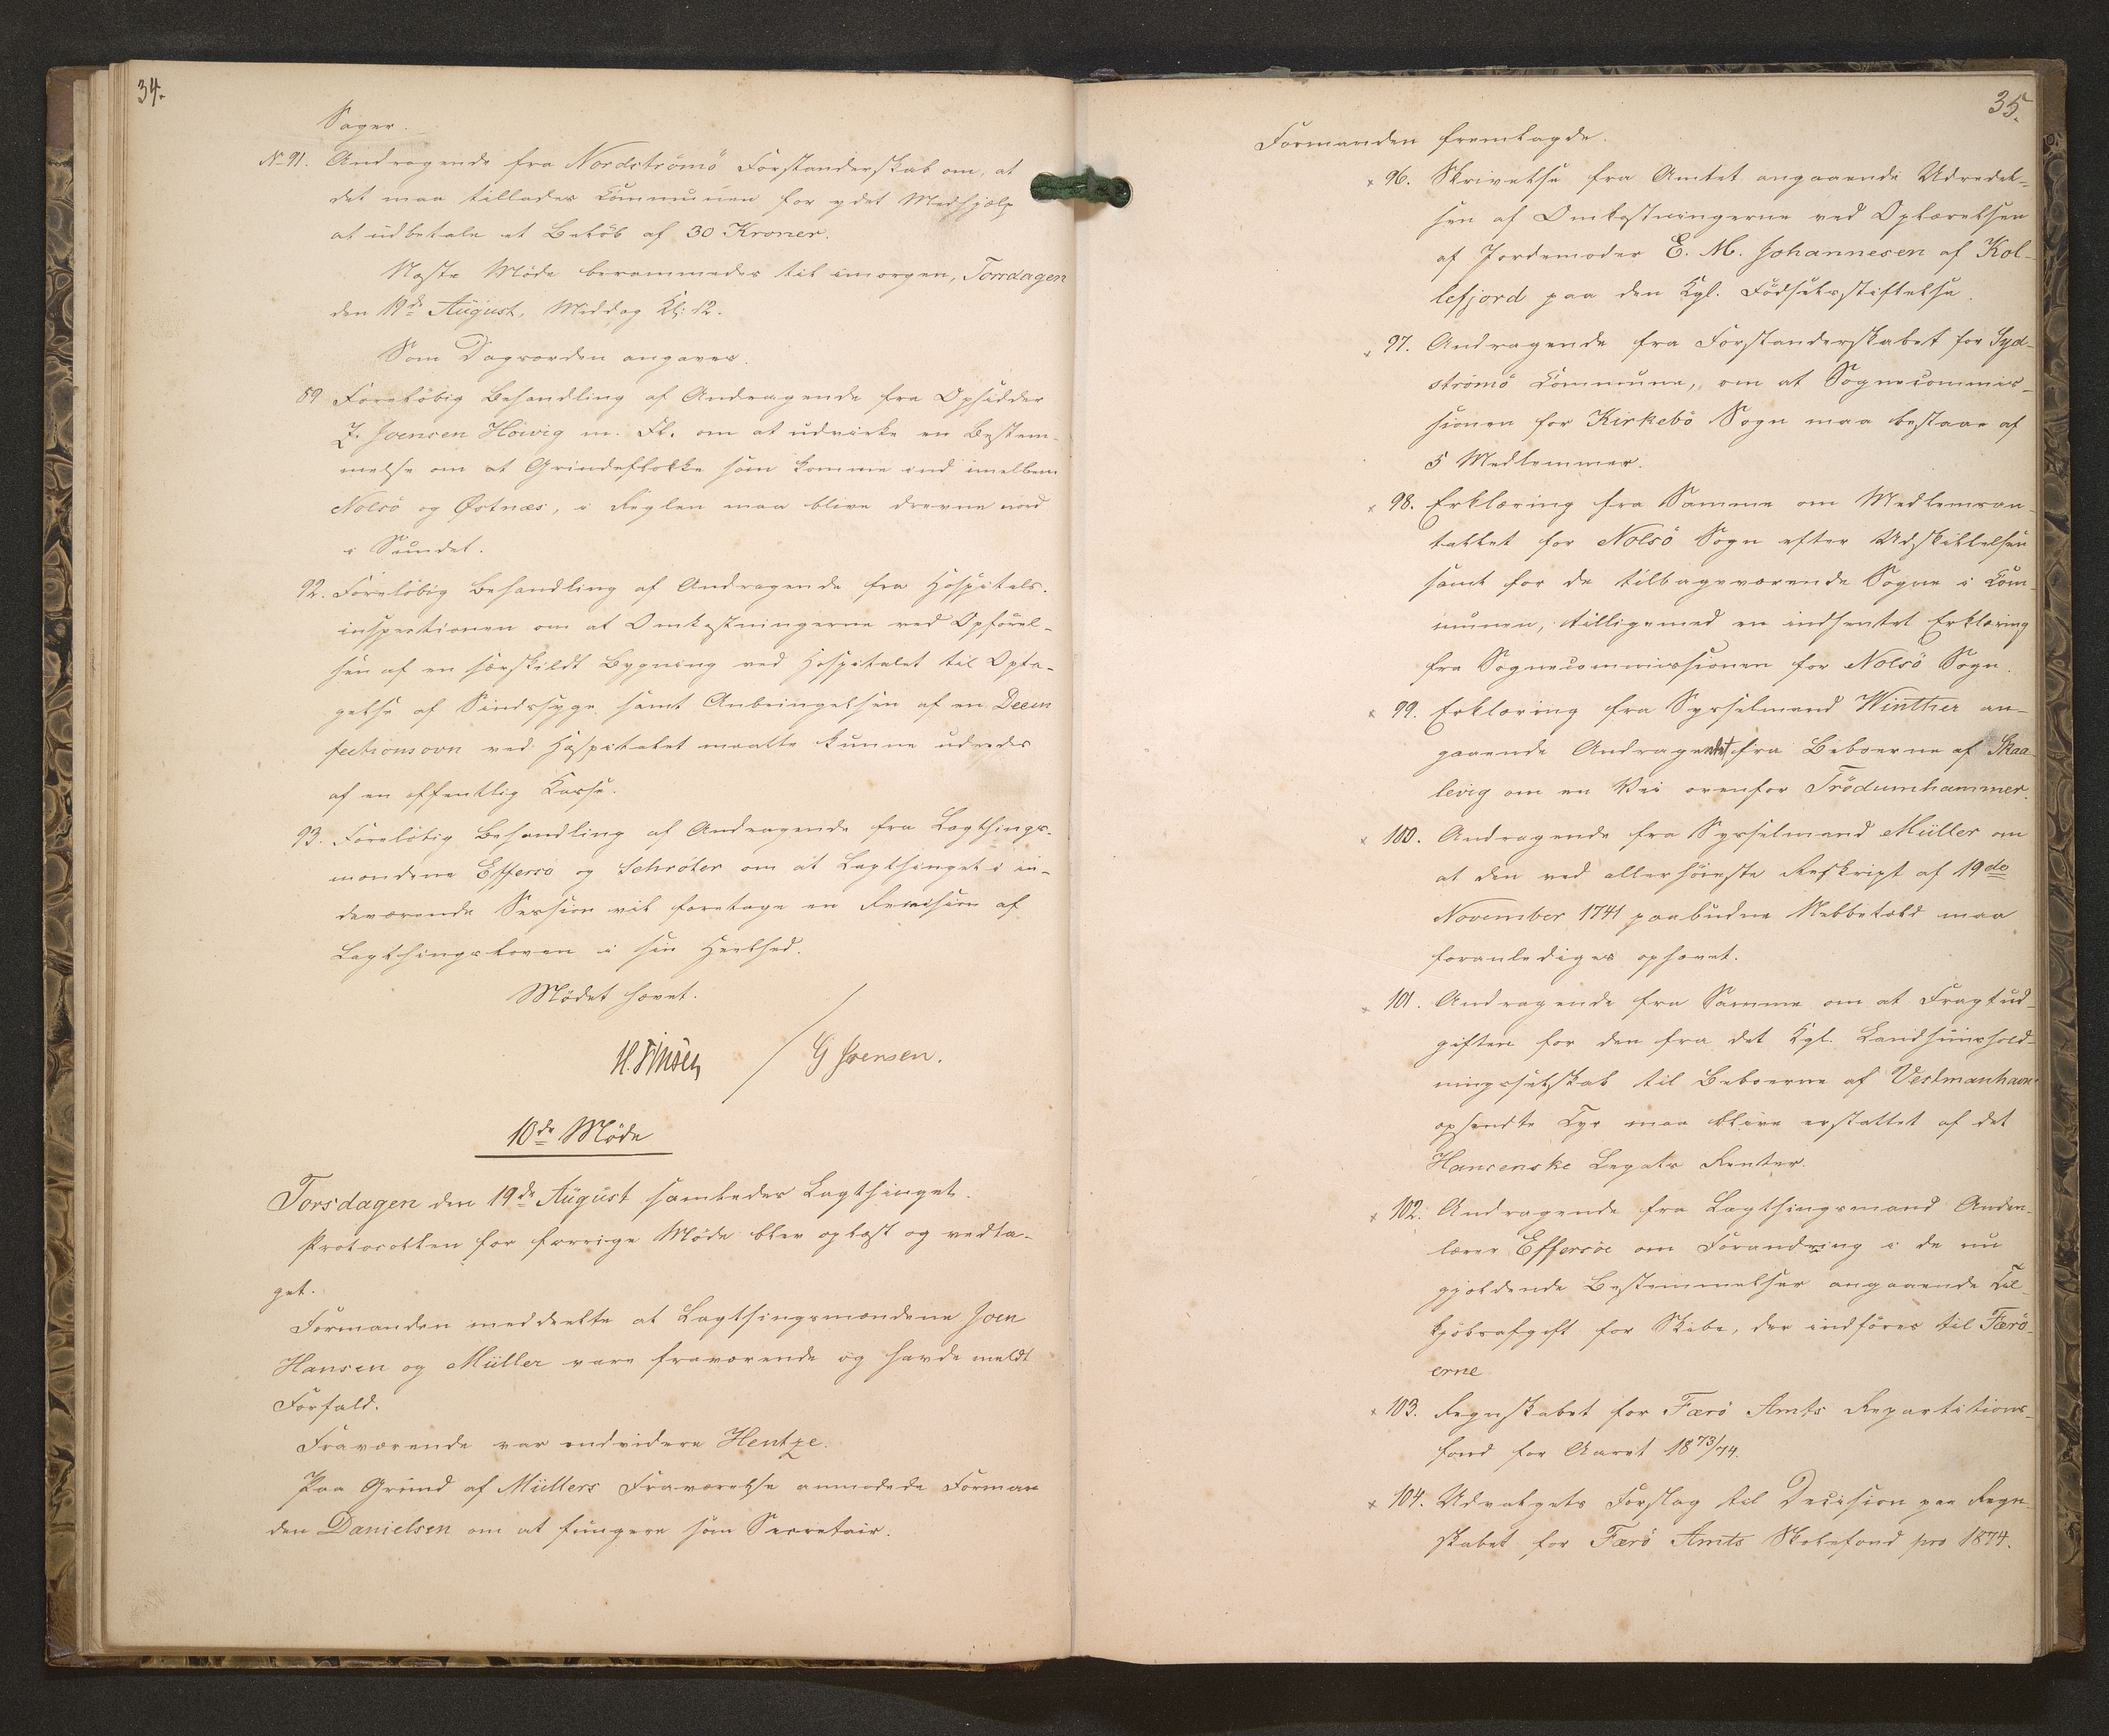 34.
Sager.
No 91. Andragende fra Nordströmö Forstanderskab om, at
det maa tillades Communen for ydet Medhjælp
at udbetale et Beløb af 30 Kroner.
Næste Möde berammedes til imorgen, Torsdagen
den 19de August, Middag Kl: 12.
Som Dagsorden angaves.
89 Foreløbig Behandling af Andragende fra Opsidder
J. Joensen Höivig m. Fl. om at udvirke en Bestem-
melse om at Grindeflokke som komme ind imellem
Nolsö og Østnæs, i Reglen maa blive drevne nord
i Sundet.
92. Foreløbig Behandling af Andragende fra Hospitals-
inspectionen om at Omkostningerne ved Opførel-
sen af en særskildt Bygning ved Hospitalet til Opta-
gelse af Sindssyge samt Anbringelsen af en Desin
fectionsovn ved Hospitalet maatte kunne udredes
af en offentlig Kasse.
93. Foreløbig Behandling af Andragende fra Lagthings-
mændene Effersö og Schröter om at Lagthinget i in-
deværende Session vil foretage en Revision af
Lagthingsloven i sin Heelhed.
Mødet hævet.
H. Finsen / G Joensen.
10de Möde
Torsdagen den 19de August samledes Lagthinget.
Protocollen for forrige Møde blev oplæst og vedta-
get.
Formanden meddeelte at Lagthingsmændene Joen
Hansen og Müller vare fraværende og havde meldt
Forfald.
Fraværende var endvidere Hentze.
Paa Grund af Müllers Fraværelse anmodede Forman
den Danielsen om at fungere som Secretair.
35.
Formanden fremlagde.
x 96. Skrivelse fra Amtet angaaende Udredel-
sen af Omkostningerne ved Oplærelsen
af Jordemoder E. M. Johannesen af Kol-
lefjord paa den Kgl. Födselsstiftelse.
x 97. Andragende fra Forstanderskabet for Syd-
strömö Commune, om at Sognecommis-
sionen for Kirkebö Sogn maa bestaae af
5 Medlemmer.
x 98. Erklæring fra Samme om Medlemsan-
tallet for Nolsö Sogn efter Udskillelsen
samt for de tilbageværende Sogne i Com-
munen, tilligemed en indhentet Erklæring
fra Sognecommissionen for Nolsö Sogn.
x 99. Erklæring fra Sysselmand Winther an-
gaaende Andragendet fra Beboerne af Skaa
levig om en Vei ovenfor Trödumhammer.
x 100. Andragende fra Sysselmand Müller om
at den ved allerhöieste Reskript af 19de
November 1741 paabudne Nebbetold maa
foranlediges ophævet.
x 101. Andragende fra Samme om at Fragtud-
giften for den fra det Kgl. Landhuushold-
ningsselskab til Beboerne af Vestmanhavn
opsendte Tyr maa blive erstattet af det
Hansenske Legats Renter.
x 102. Andragende fra Lagthingsmand Anden-
lærer Effersöe om Forandring i de nu
gjældende Bestemmelser angaaende Til-
kjöbsafgift for Skibe, der indföres til Færö-
erne
x 103. Regnskabet for Færö Amts Repartitions-
fond for Aaret 1873/74.
x 104. Udvalgets Forslag til Decision paa Regn-
skabet for Færö Amts Skolefond pro 1874.